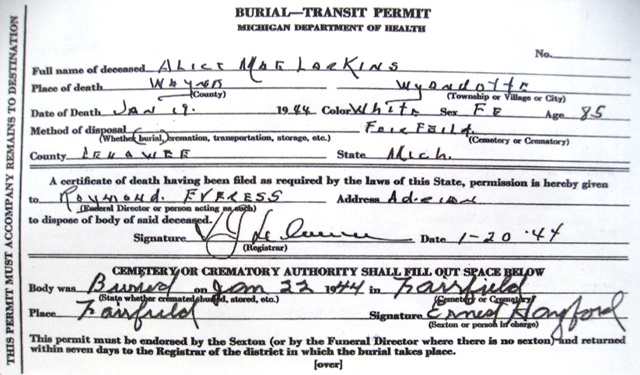 BURIAL—TRANSIT PERMIT
MICHIGAN DEPARTMENT OF HEALTH
No.
Full name of deceased ALICE MAE LARKINS
Place of death WAYNE WYANDOTTE
(County) (Township or Village or City)
Date of Death JAN 19. 1944 Color White Sex FE Age 85
Method of disposal FairField.
(Whether burial, cremation, transportation, storage, etc.) (Cemetery or Crematory)
County LENAWEE State Mich.
A certificate of death having been filed as required by the laws of this State, permission is hereby given
to RAYMOND. EVERESS Address Adrian
(Funeral Director or person acting as such)
to dispose of body of said deceased.
Signature Date 1-20-44
(Registrar)
CEMETERY OR CREMATORY AUTHORITY SHALL FILL OUT SPACE BELOW
Body was Buried on Jan 22 1944 in Fairfield
(State whether cremated, buried, stored, etc.) (Cemetery or Crematory)
Place Fairfield Signature Ernest Hayford
(Sexton or person in charge)
This permit must be endorsed by the Sexton (or by the Funeral Director where there is no sexton) and returned
within seven days to the Registrar of the district in which the burial takes place.
[over]
THIS PERMIT MUST ACCOMPANY REMAINS TO DESTINATION